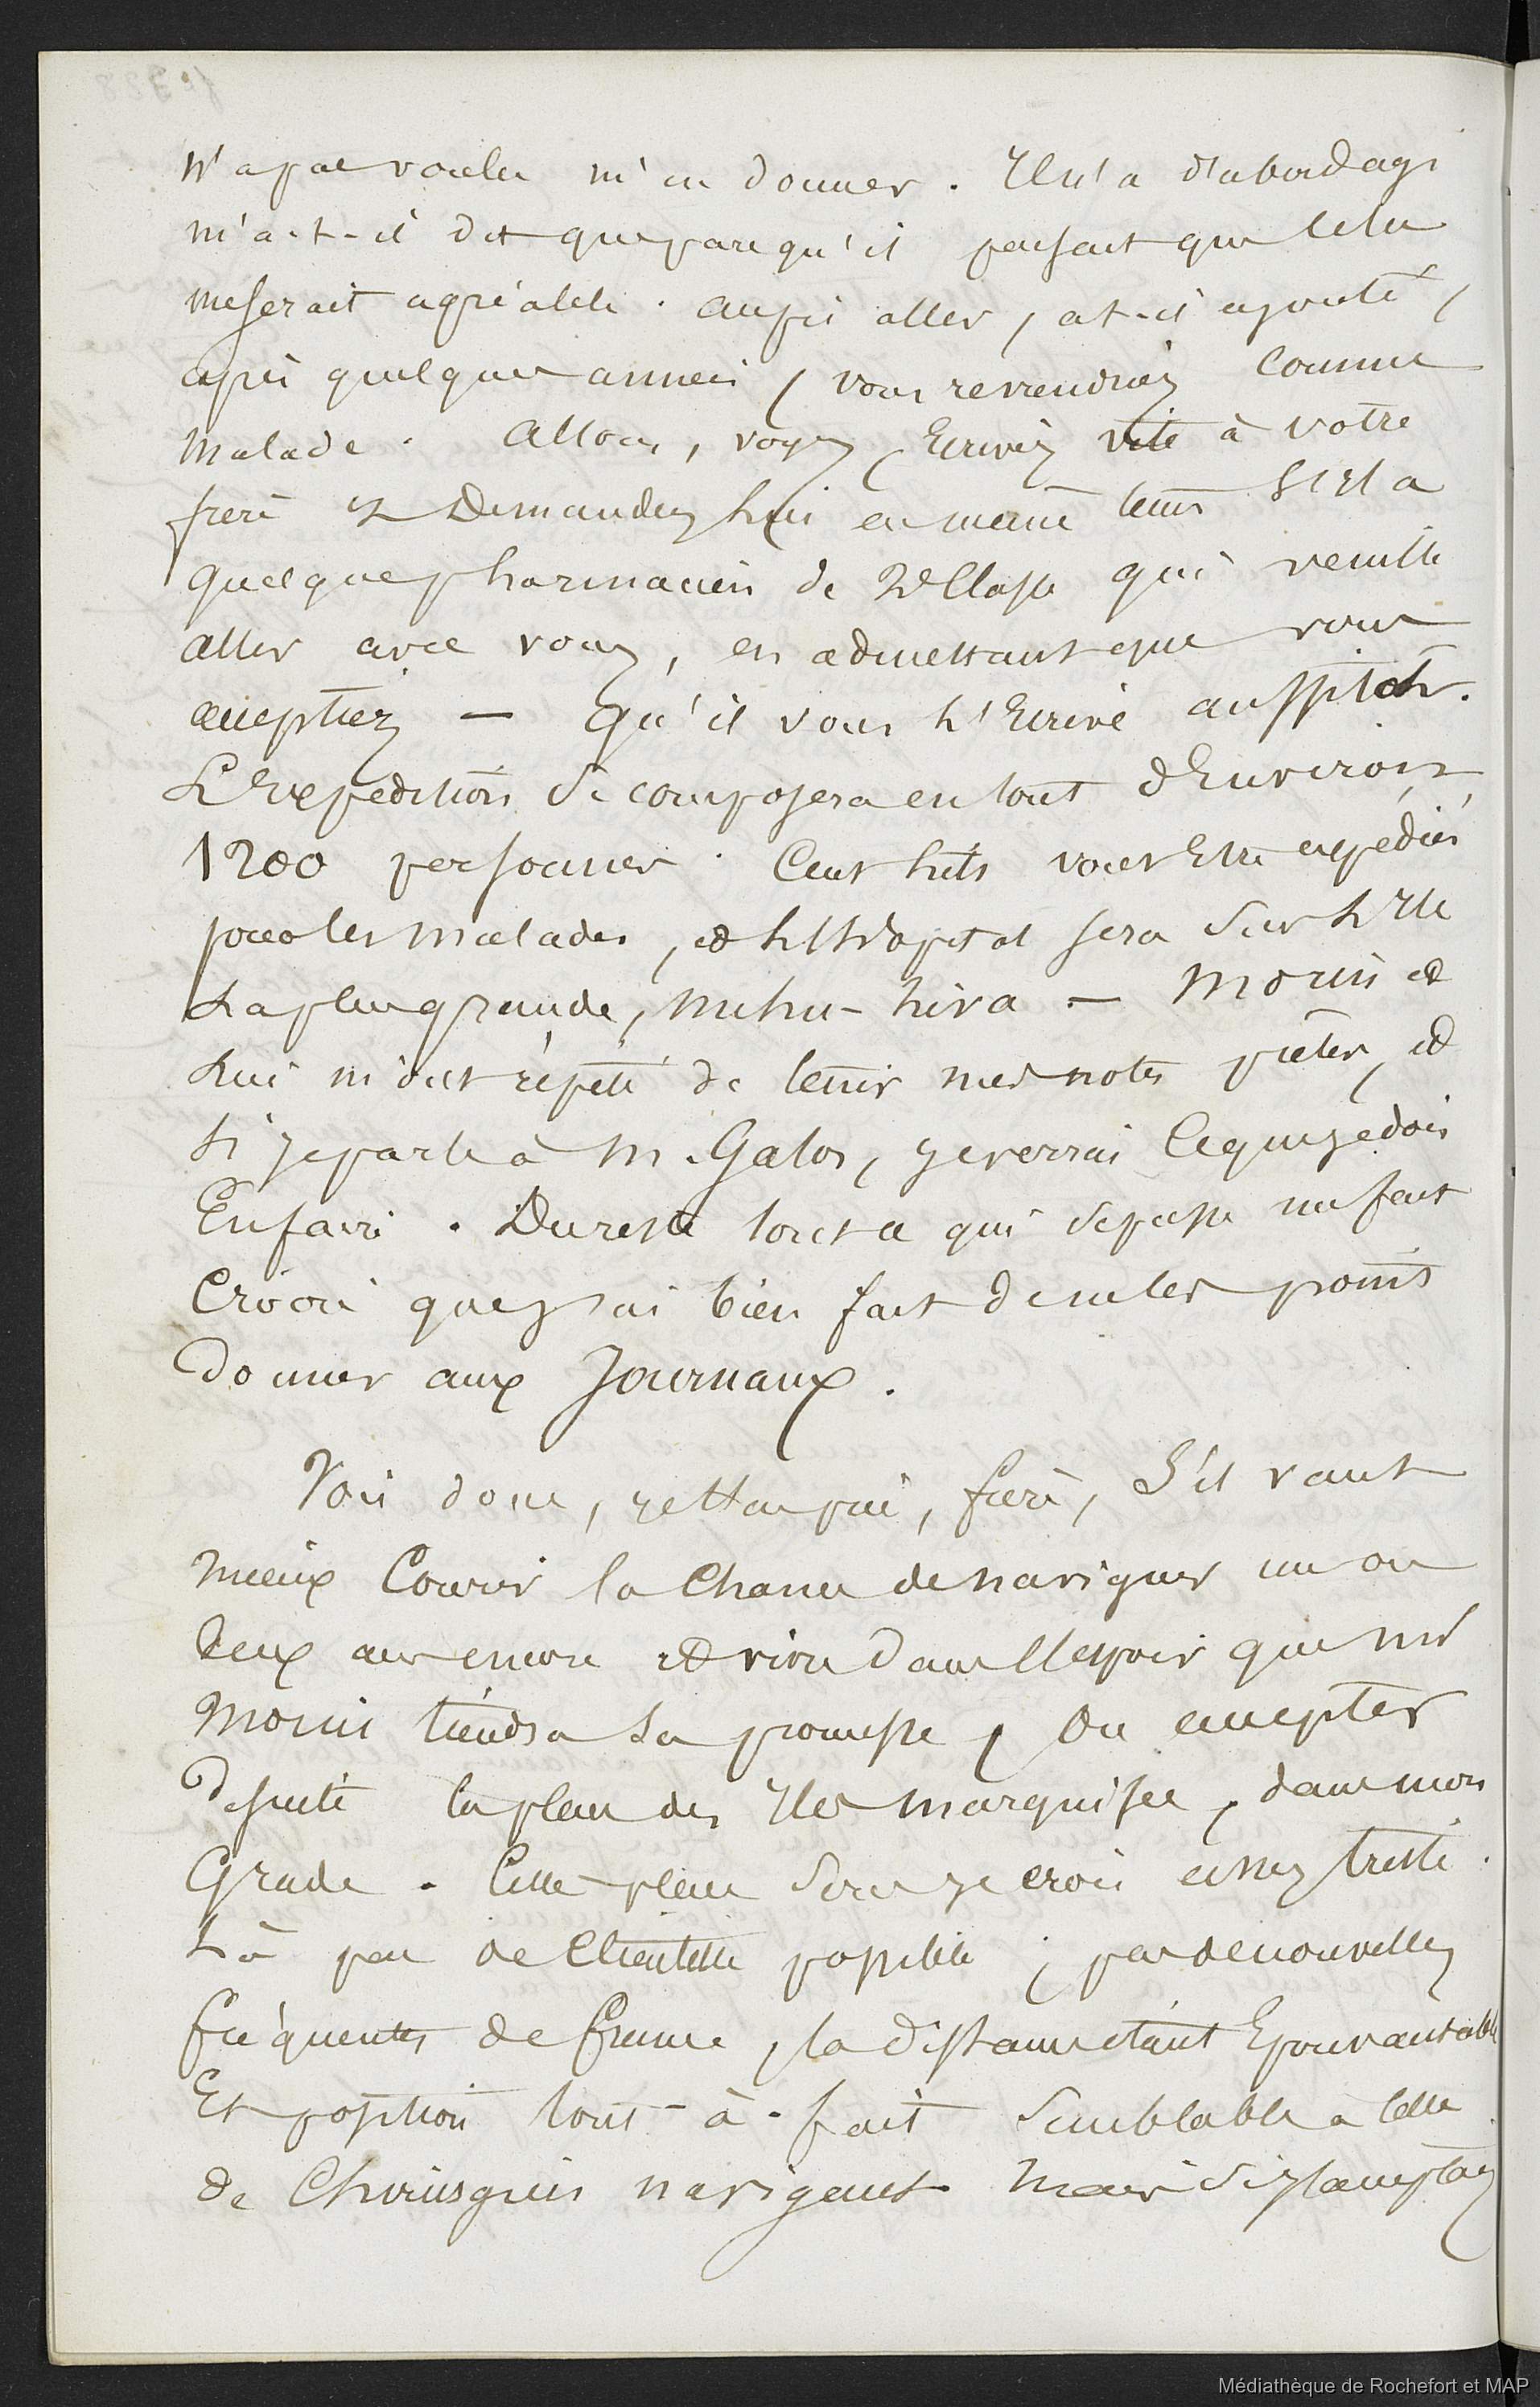 n'a pas voulu m'en donner. Il n'a d'abord agi
m'a-t-il dit que parcequ'il pensait que cela
me serait agréable. aussi aller, a t-il ajouté,
après quelques années, vous reviendriez comme
malade. Allons, voyez, Ecrivez vite à votre
frère et Demandez lui en même tems s'il a
quelque pharmacien de 2e Classe qui veuille
aller avec vous, en admettant que vous
acceptiez — qu'il vous l'Ecrive aussitôt.
L'Expédition se composera en tout d'Environ
1200 personnes. Cent lits vont Etre expédiés
pour les malades, et l'hôpital sera sur l'Ile
La plus grande, Nuhu-hiva — Morin et
Lui m'ont répété de tenir mes notes prêtes, et
Si je parle à M. Galos, je verrai ce que je dois
En faire. Du reste tout ce qui se passe me fait
Croire que j'ai bien fait de ne les point
donner aux Journaux.
Vois donc, frère, S'il vaut
mieux Courir la Chance de naviguer un ou
deux ans encore et vivre dans l'espoir que Mr
Morin tiendra Sa promesse, Ou accepter
de suite la place des Iles Marquises, dans mon
Grade. Cette place Sera je crois assez triste.
Là peu de Clientelle possible; pas de nouvelles
fréquentes de france, la distance étant Epouvantable
Et position tout-à-fait Semblable à celle
de Chirurgien navigant. Mais si j'acceptais
Médiathèque de Rochefort et MAP